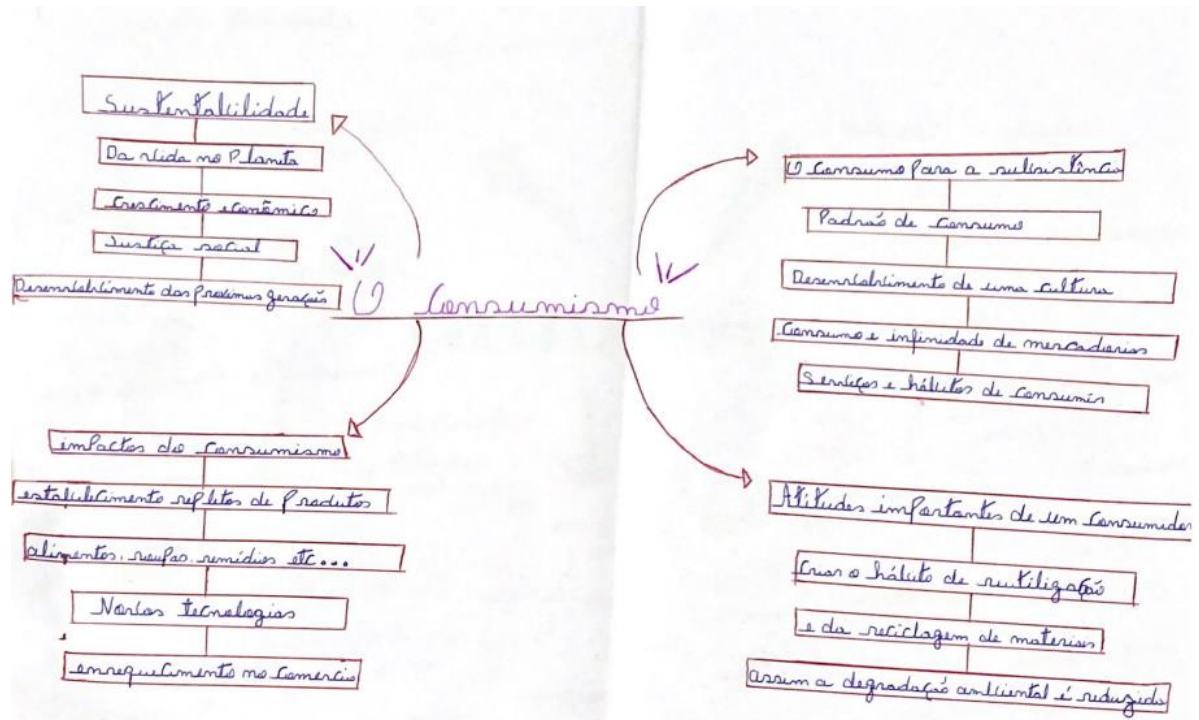 Sustentabilidade
Da vida no Planeta
Crescimento econômico
Justiça social
Desenvolvimento das Proximas gerações
O Consumismo
O Consumo Para a subsistência
Padrão de Consumo
Desenvolvimento de uma cultura
Consumo e infinidade de mercadorias
Serviços e hábitos de consumir
impactos do Consumismo
estabelecimento repletos de Produtos
alimentos, roupas, remédios etc...
Novas tecnologias
enrequecimento no Comercio
Atitudes importantes de um Consumidor
Criar o hábito de reutilização
e da reciclagem de materiais
assim a degradação ambiental é reduzida